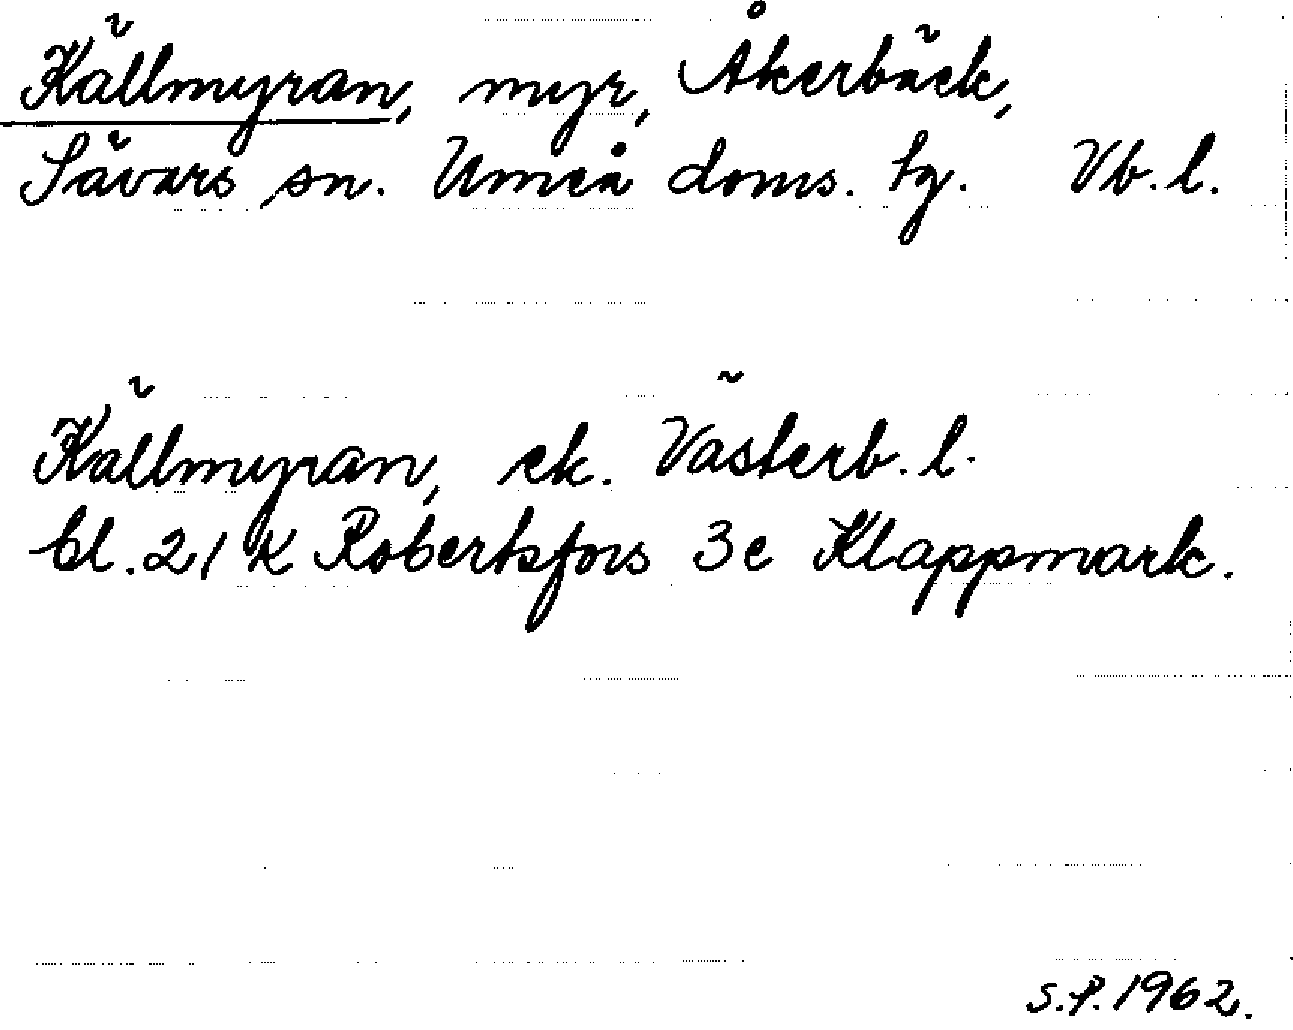 Källmyran, myr, Åkerbäck,
Sävars sn. Umeå doms. tg. Vb. l.
Källmyran, ek. Västerb. l.
bl. 21 K Robertsfors 3e Klappmark.
S.P. 1962.